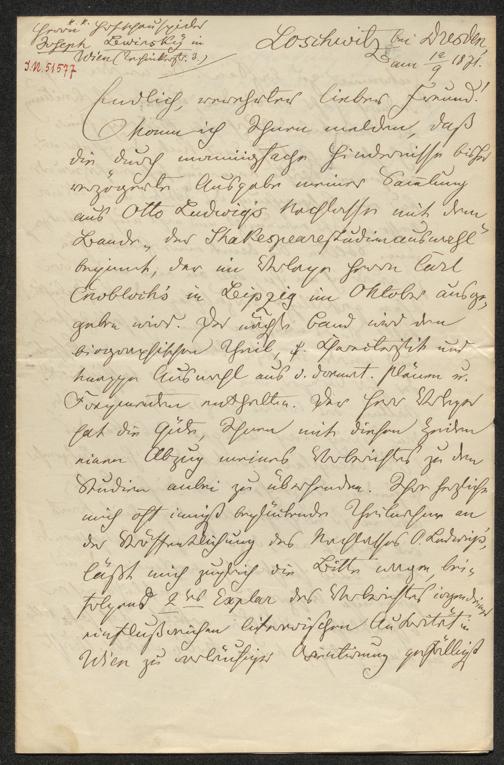 Herrn K. K. Hofschauspieler
Joseph Lewinsky in
Wien
J.N. 51577
Loschwitz bei Dresden,
am 12/9 1871.
Endlich, verehrter lieber Freund!
kann ich Ihnen melden, daß
die durch mannigfache Hindernisse bisher
verzögerte Ausgabe meiner Sammlung
aus Otto Ludwig's Nachlasse mit dem
Bande „der Shakespearestudienauswahl"
beginnt, der im Verlage Herrn Carl
Cnobloch's in Leipzig im Oktober ausge-
geben wird. Der nächste Band wird den
biographischen Theil, Charakteristik und
knappe Auswahl aus d. dramat. Plänen u.
Fragmenten enthalten. Der Herr Verleger
hat die Güte, Ihnen mit diesen Zeilen
einen Abzug meines Vorberichtes zu den
Studien anbei zu übersenden. Ihre herzliche
mich oft innigst beglückende Theilnahme an
der Veröffentlichung des Nachlasses O. Ludwig's,
läßt mich zugleich die Bitte wagen, bei-
folgend 2tes Explar des Vorberichtes irgendeiner
einflußreichen literarischen Autorität in
Wien zu vorläufiger Orientirung gefälligst